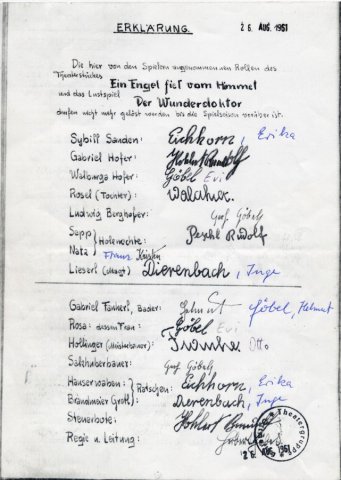 ERKLÄRUNG.
26. AUG. 1961
Die hier von den Spielern angenommenen Rollen des
Theaterstückes
Ein Engel fiel vom Himmel
und das Lustspiel
Der Wunderdoktor
dürfen nicht mehr gelöst werden bis die Spielsaison vorüber ist.
Sybill Sanden: Eichhorn, Erika
Gabriel Hofer:
Walburga Hofer: Göbel Evi
Rosel (Tochter):
Ludwig Berghofer: Göbel
Sepp } Holzknechte: Peschl Rudolf
Natz Franz
Lieserl (Magd) Dierenbach, Inge
Gabriel Tankerl, Bader: Helmut Göbel, Helmut
Rosa: dessen Frau: Göbel Evi
Hollinger (Meisterbauer): Otto
Salzhuberbauer: Göbel
Hauserwaben: } Ratschen: Eichhorn, Erika
Brandmeier Gretl: Dierenbach, Inge
Steuerbote:
Regie u. Leitung:
Theatergruppe
26. AUG. 1961